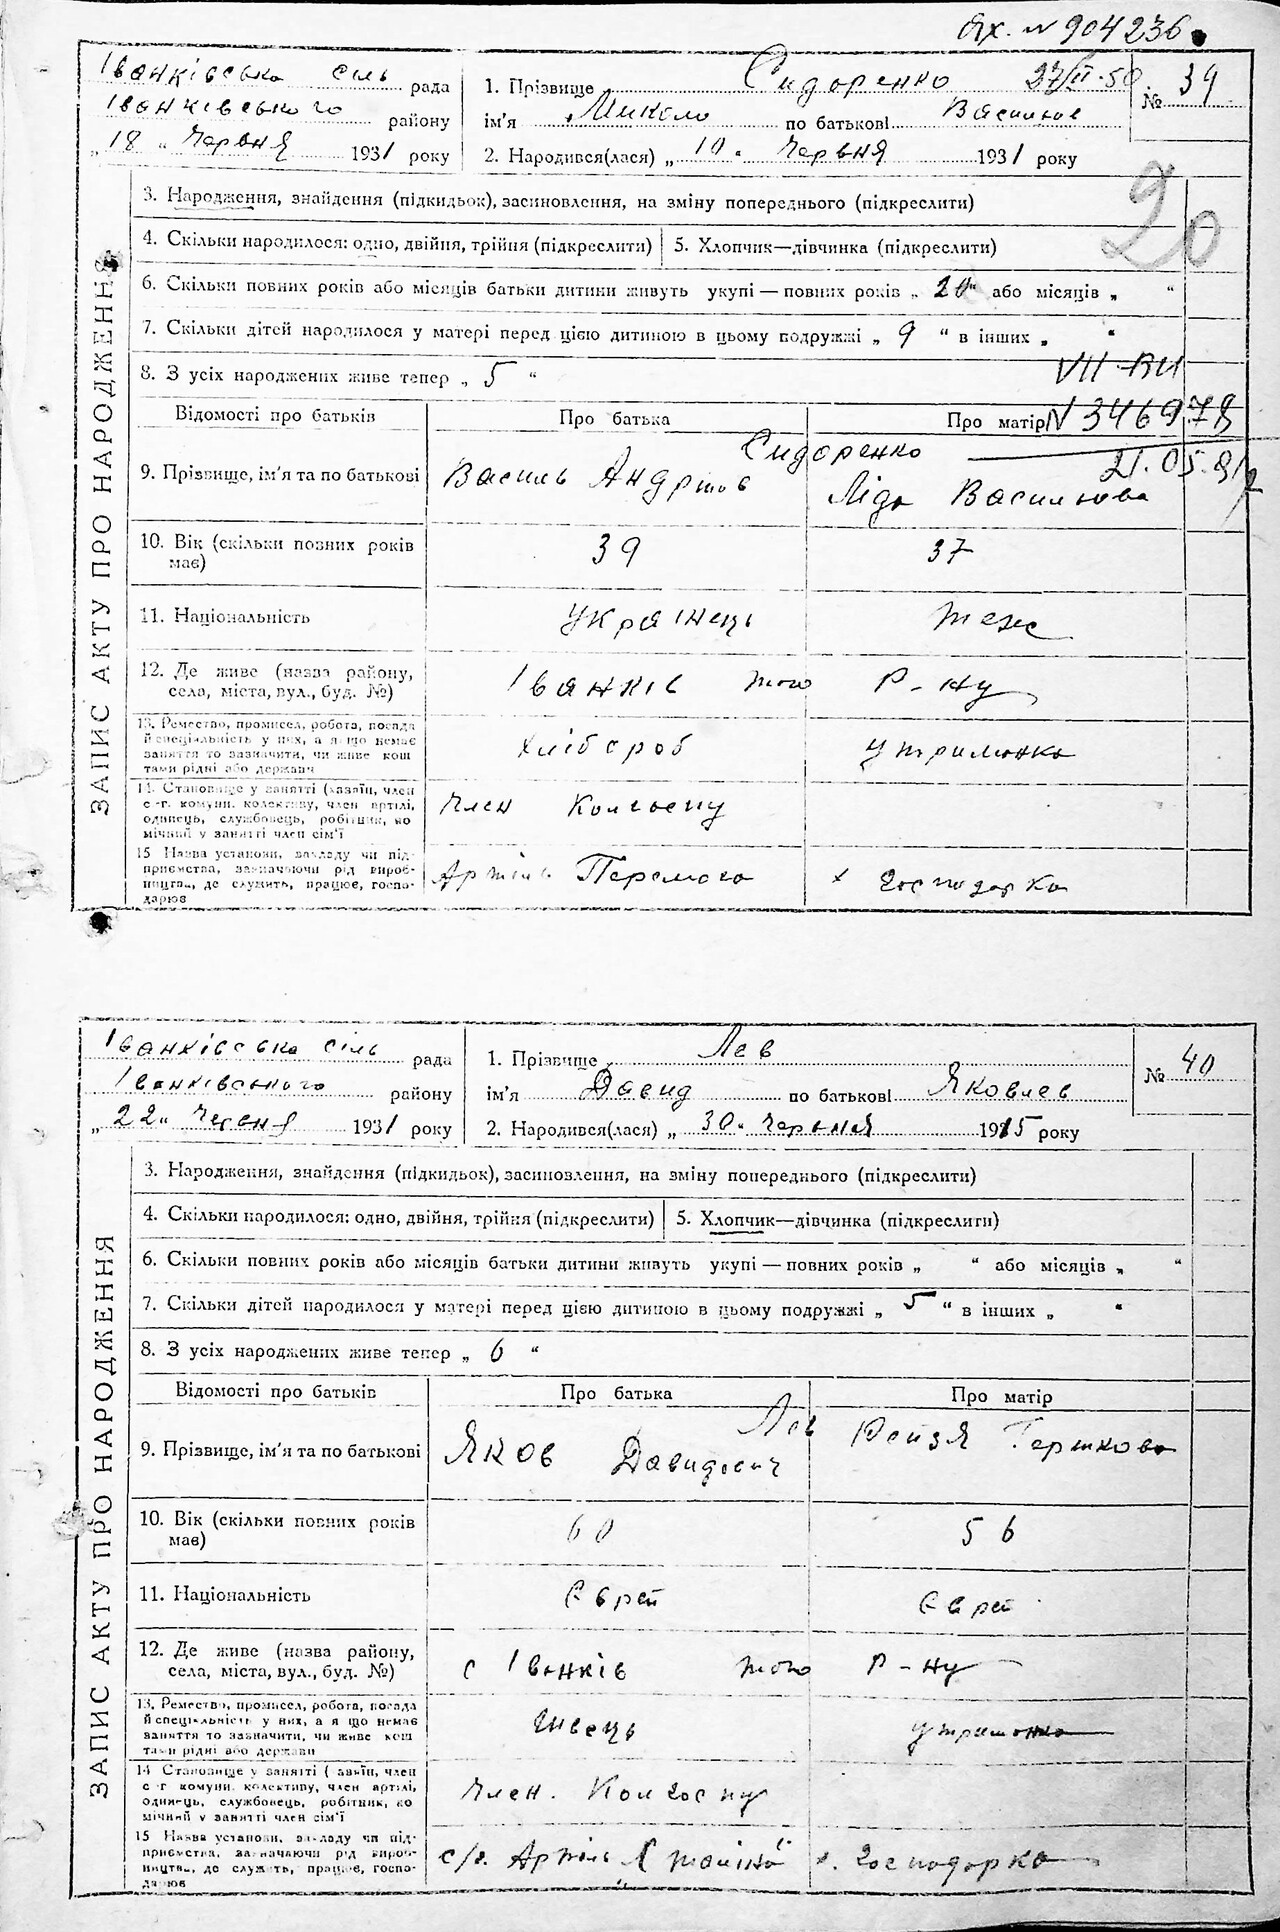 ях. № 904236
Іванківська сіль рада
Іванківського району
„ 18 " Червня 1931 року
1. Прізвище Сидоренко 27/II-50
ім'я Микола по батькові Васильов
2. Народився(лася) „ 10 " Червня 1931 року
№ 39
20
ЗАПИС АКТУ ПРО НАРОДЖЕННЯ
3. Народження, знайдення (підкидьок), засиновлення, на зміну попереднього (підкреслити)
4. Скільки народилося: одно, двійня, трійня (підкреслити) 5. Хлопчик—дівчинка (підкреслити)
6. Скільки повних років або місяців батьки дитини живуть укупі — повних років „ 20 " або місяців „ "
7. Скільки дітей народилося у матері перед цією дитиною в цьому подружжі „ 9 " в інших „ "
8. З усіх народжених живе тепер „ 5 "
VII-ВИ
N 346978
21.05.81
Відомості про батьків Про батька Про матір
9. Прізвище, ім'я та по батькові Сидоренко
Василь Андріїв Ліда Василькова
10. Вік (скільки повних років має) 39 37
11. Національність українець теж
12. Де живе (назва району, села, міста, вул., буд. №) Іванків того р-ну
13. Ремество, промисел, робота, посада
й спеціальність у них, а якщо немає
заняття то зазначити, чи живе кош
тами рідні або держави
хлібороб утриманка
14. Становище у занятті (хазяїн, член
с.-г. комуни, колективу, член артілі,
одинець, службовець, робітник, по
мічний у занятті член сім'ї
член Колгоспу
15 Назва установи, закладу чи під-
приємства, зазначаючи рід вироб-
ництва, де служить, працює, госпо-
дарює
Артіль Перемога х господарка
Іванківська сіль рада
Іванківського району
„ 22 " Червня 1931 року
1. Прізвище Лев
ім'я Давид по батькові Яковлев
2. Народився(лася) „ 30 " Червня 1915 року
№ 40
ЗАПИС АКТУ ПРО НАРОДЖЕННЯ
3. Народження, знайдення (підкидьок), засиновлення, на зміну попереднього (підкреслити)
4. Скільки народилося: одно, двійня, трійня (підкреслити) 5. Хлопчик—дівчинка (підкреслити)
6. Скільки повних років або місяців батьки дитини живуть укупі — повних років „ " або місяців „ "
7. Скільки дітей народилося у матері перед цією дитиною в цьому подружжі „ 5 " в інших „ "
8. З усіх народжених живе тепер „ 6 "
Відомості про батьків Про батька Про матір
9. Прізвище, ім'я та по батькові Лев
Яков Давидович Рейзя Гершкова
10. Вік (скільки повних років має) 60 56
11. Національність Єврей Єврей
12. Де живе (назва району, села, міста, вул., буд. №) с Іванків того р-ну
13. Ремество, промисел, робота, посада
й спеціальність у них, а якщо немає
заняття то зазначити, чи живе кош
тами рідні або держави
Швець утриманка
14 Становище у занятті (хазяїн, член
с-г комуни, колективу, член артілі,
одинець, службовець, робітник, по
мічний у занятті член сім'ї
Член. Колгоспу
15 Назва установи, закладу чи під-
приємства, зазначаючи рід вироб-
ництва, де служить, працює, госпо-
дарює
с/г. Артіль господарка